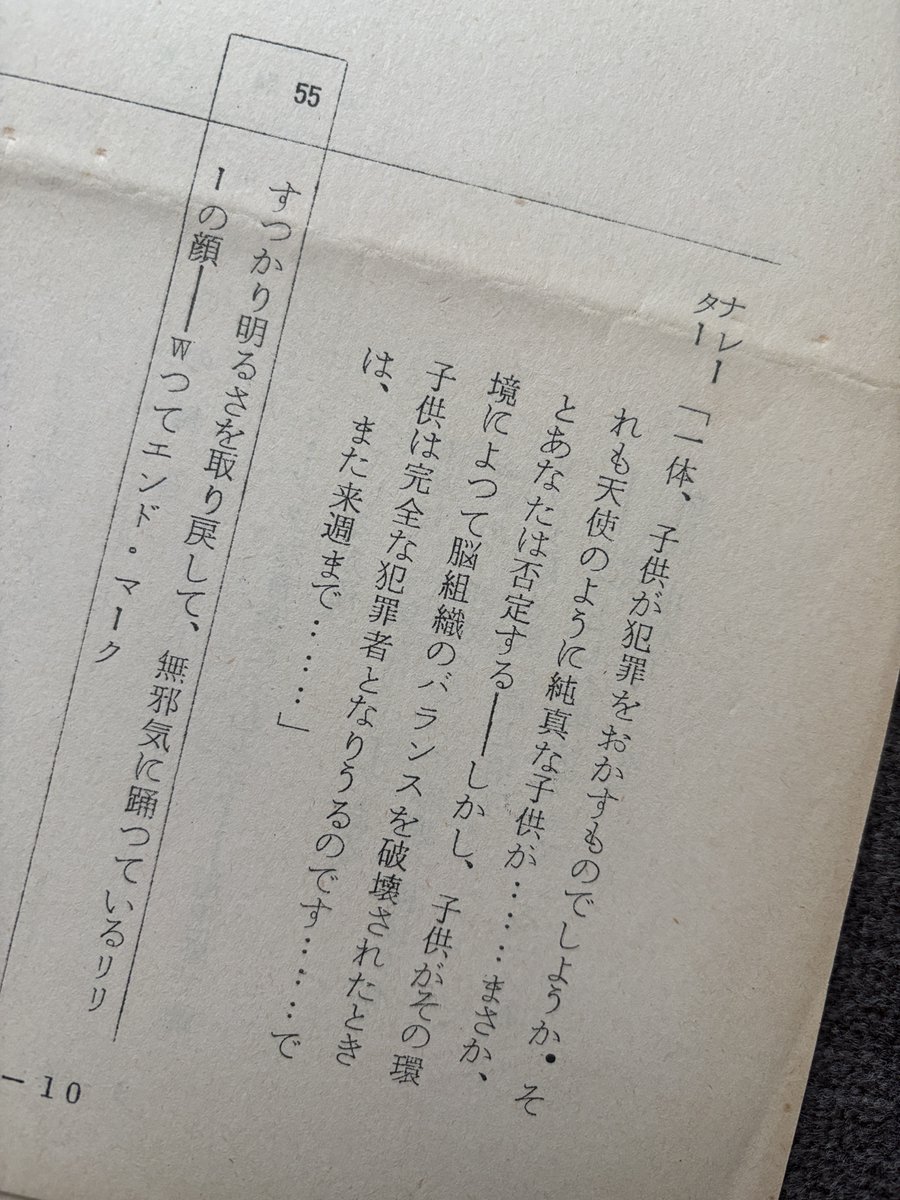 ナレー
ター
「一体、子供が犯罪をおかすものでしようか。そ
れも天使のように純真な子供が……まさか、
とあなたは否定する——しかし、子供がその環
境によつて脳組織のバランスを破壊されたとき
子供は完全な犯罪者となりうるのです……で
は、また来週まで……」
55
すつかり明るさを取り戻して、無邪気に踊つているリリ
ーの顔——Wつてエンド・マーク
－10